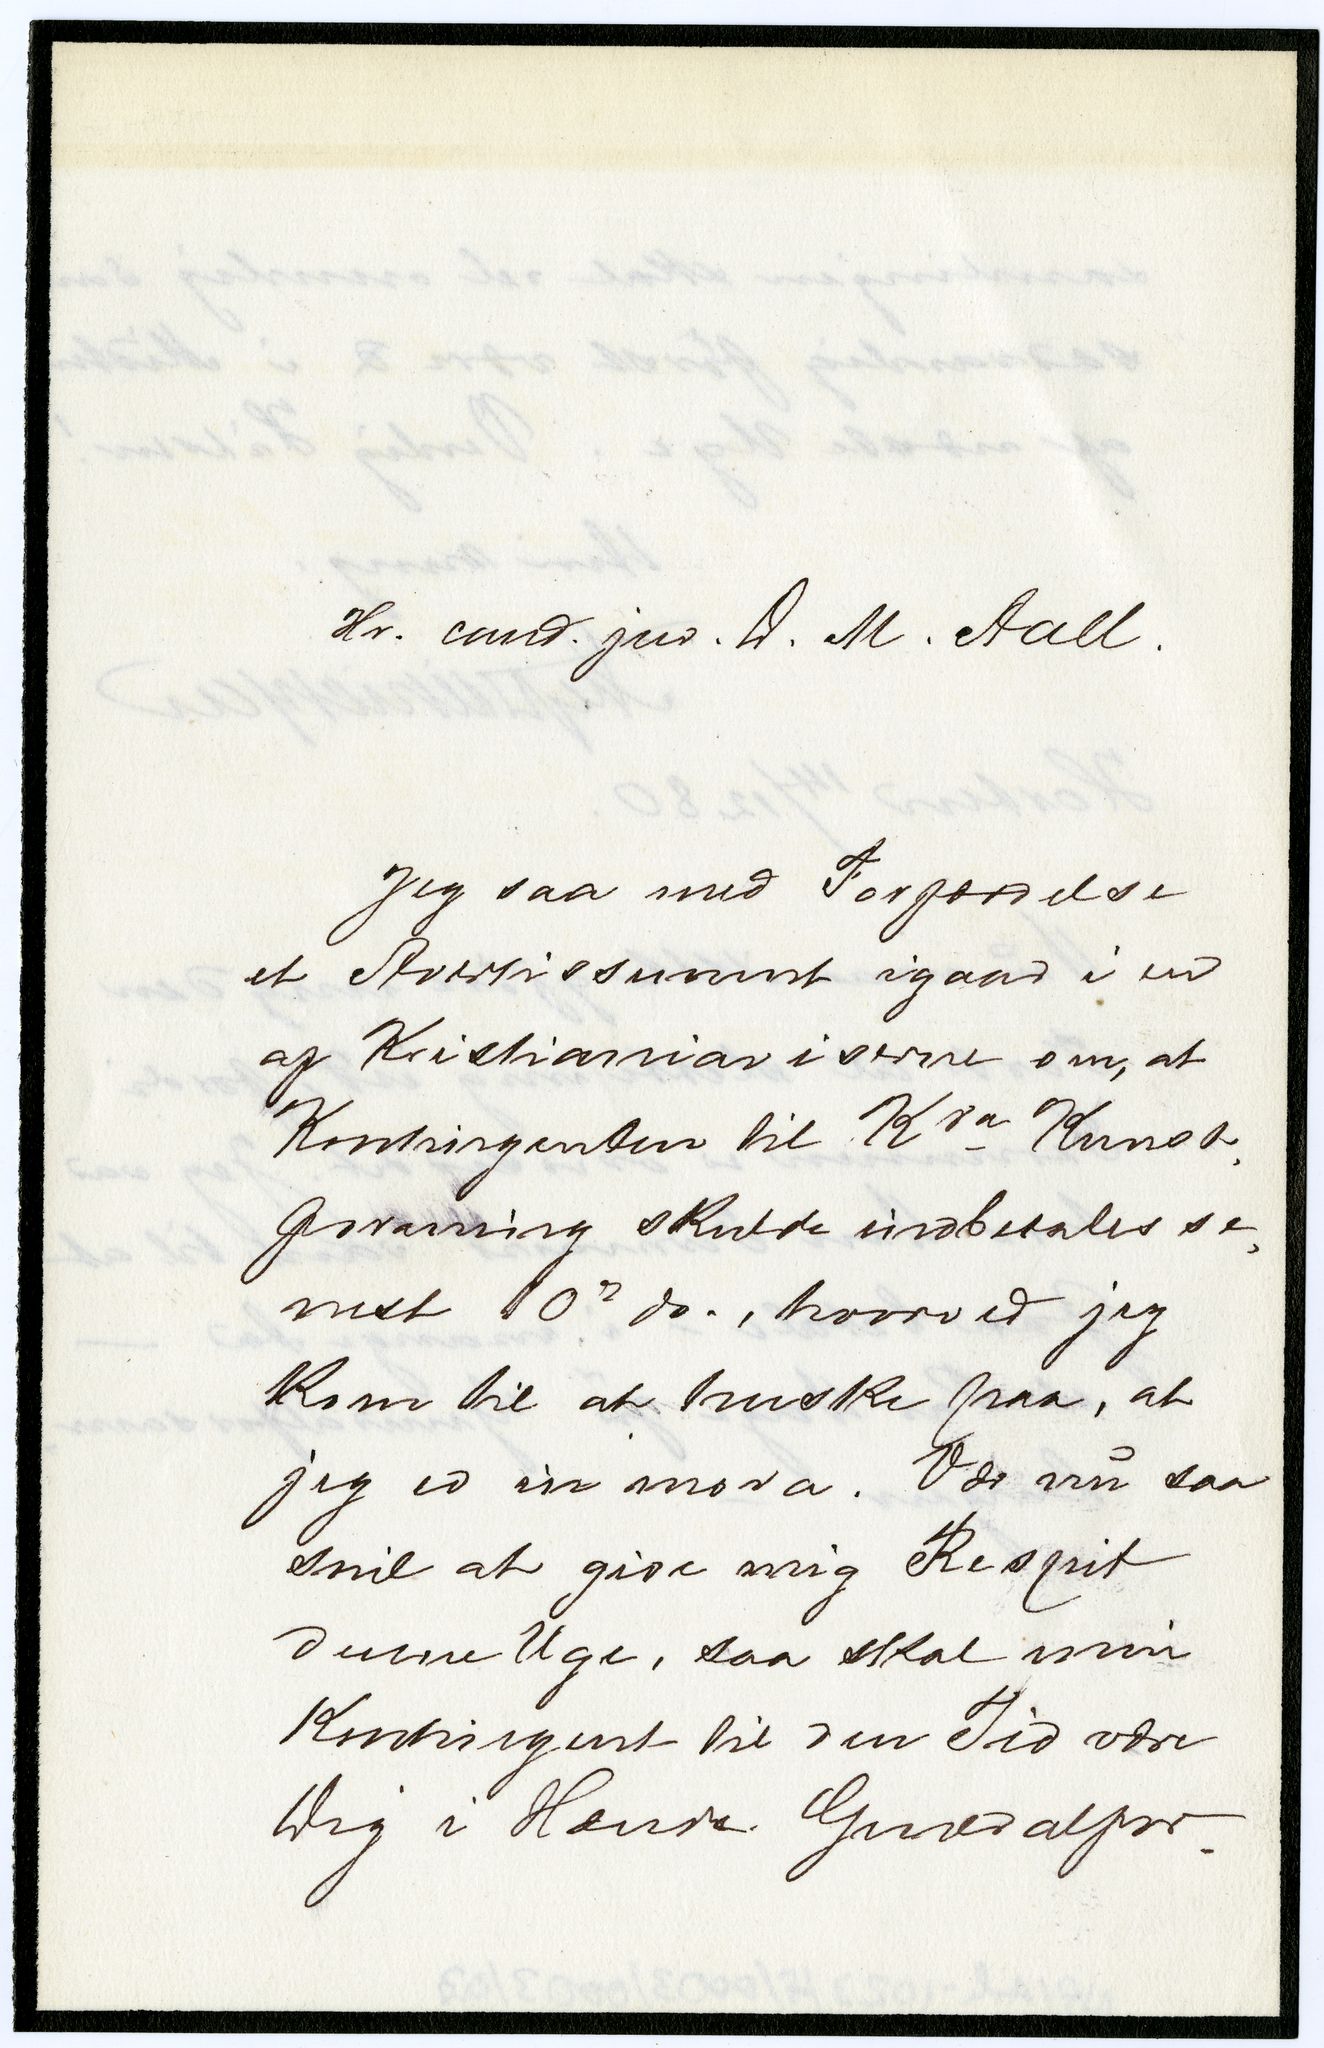 Hr. cand. jur. D. M. Aall.
Jeg saa med Forfærdelse
et Avertissement igaar i en
af Kristianiaviserne om, at
Kontingenten til Kra Kunst,
forening skulde indbetales se,
nest 10de ds., hvorved jeg
kom til at huske paa, at
jeg er in mora. Vær nu saa
snil at give mig Respit
denne Uge, saa skal min
Kontingent til den Tid være
Dig i Hænde. Generalfor-